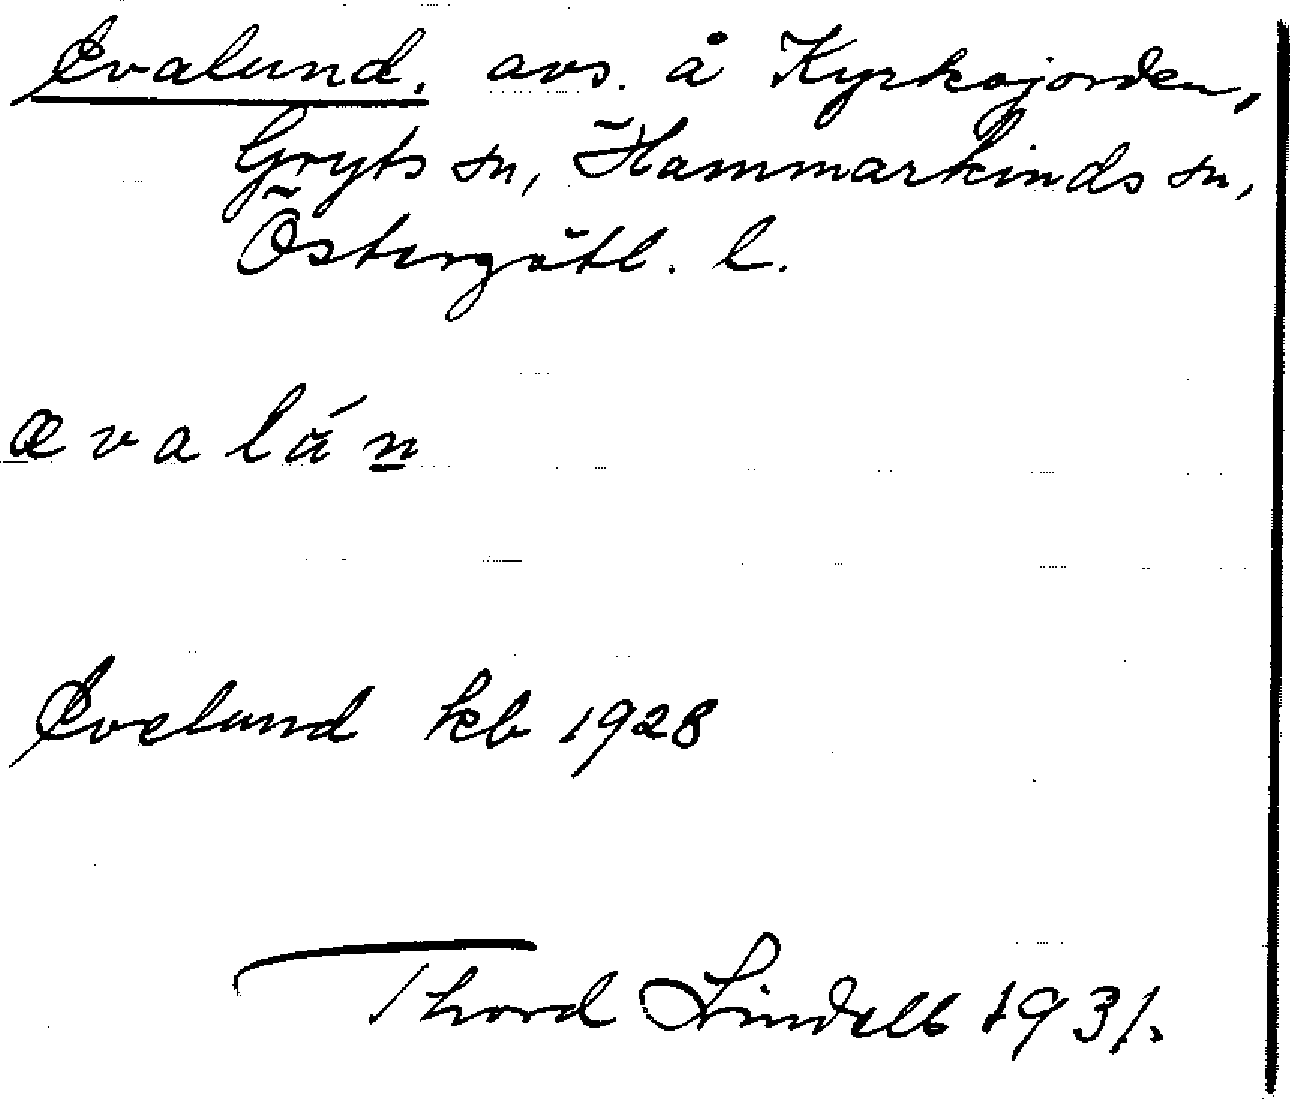 Evalund. avs. å Kyrkojorden,
Gryts sn, Hammarkinds sn,
Östergötl. l.
æ v a l á n
Evelund kb 1928
Thord Lindell 1931.